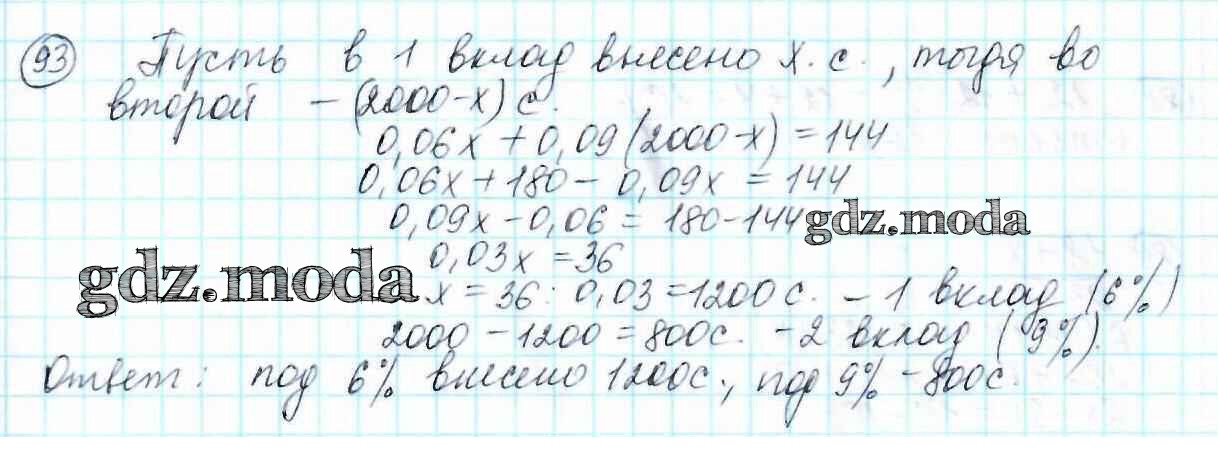 93 Пусть в 1 вклад внесено х. с., тогда во
второй – (2000-х) с.
0,06х + 0,09 (2000-х) = 144
0,06х + 180 - 0,09х = 144
0,09х - 0,06 = 180-144
gdz.moda
0,03х = 36
gdz.moda
х = 36 : 0,03 = 1200 с. – 1 вклад (6%)
2000 – 1200 = 800с. - 2 вклад (9%).
Ответ: под 6% внесено 1200с., под 9% - 800с.